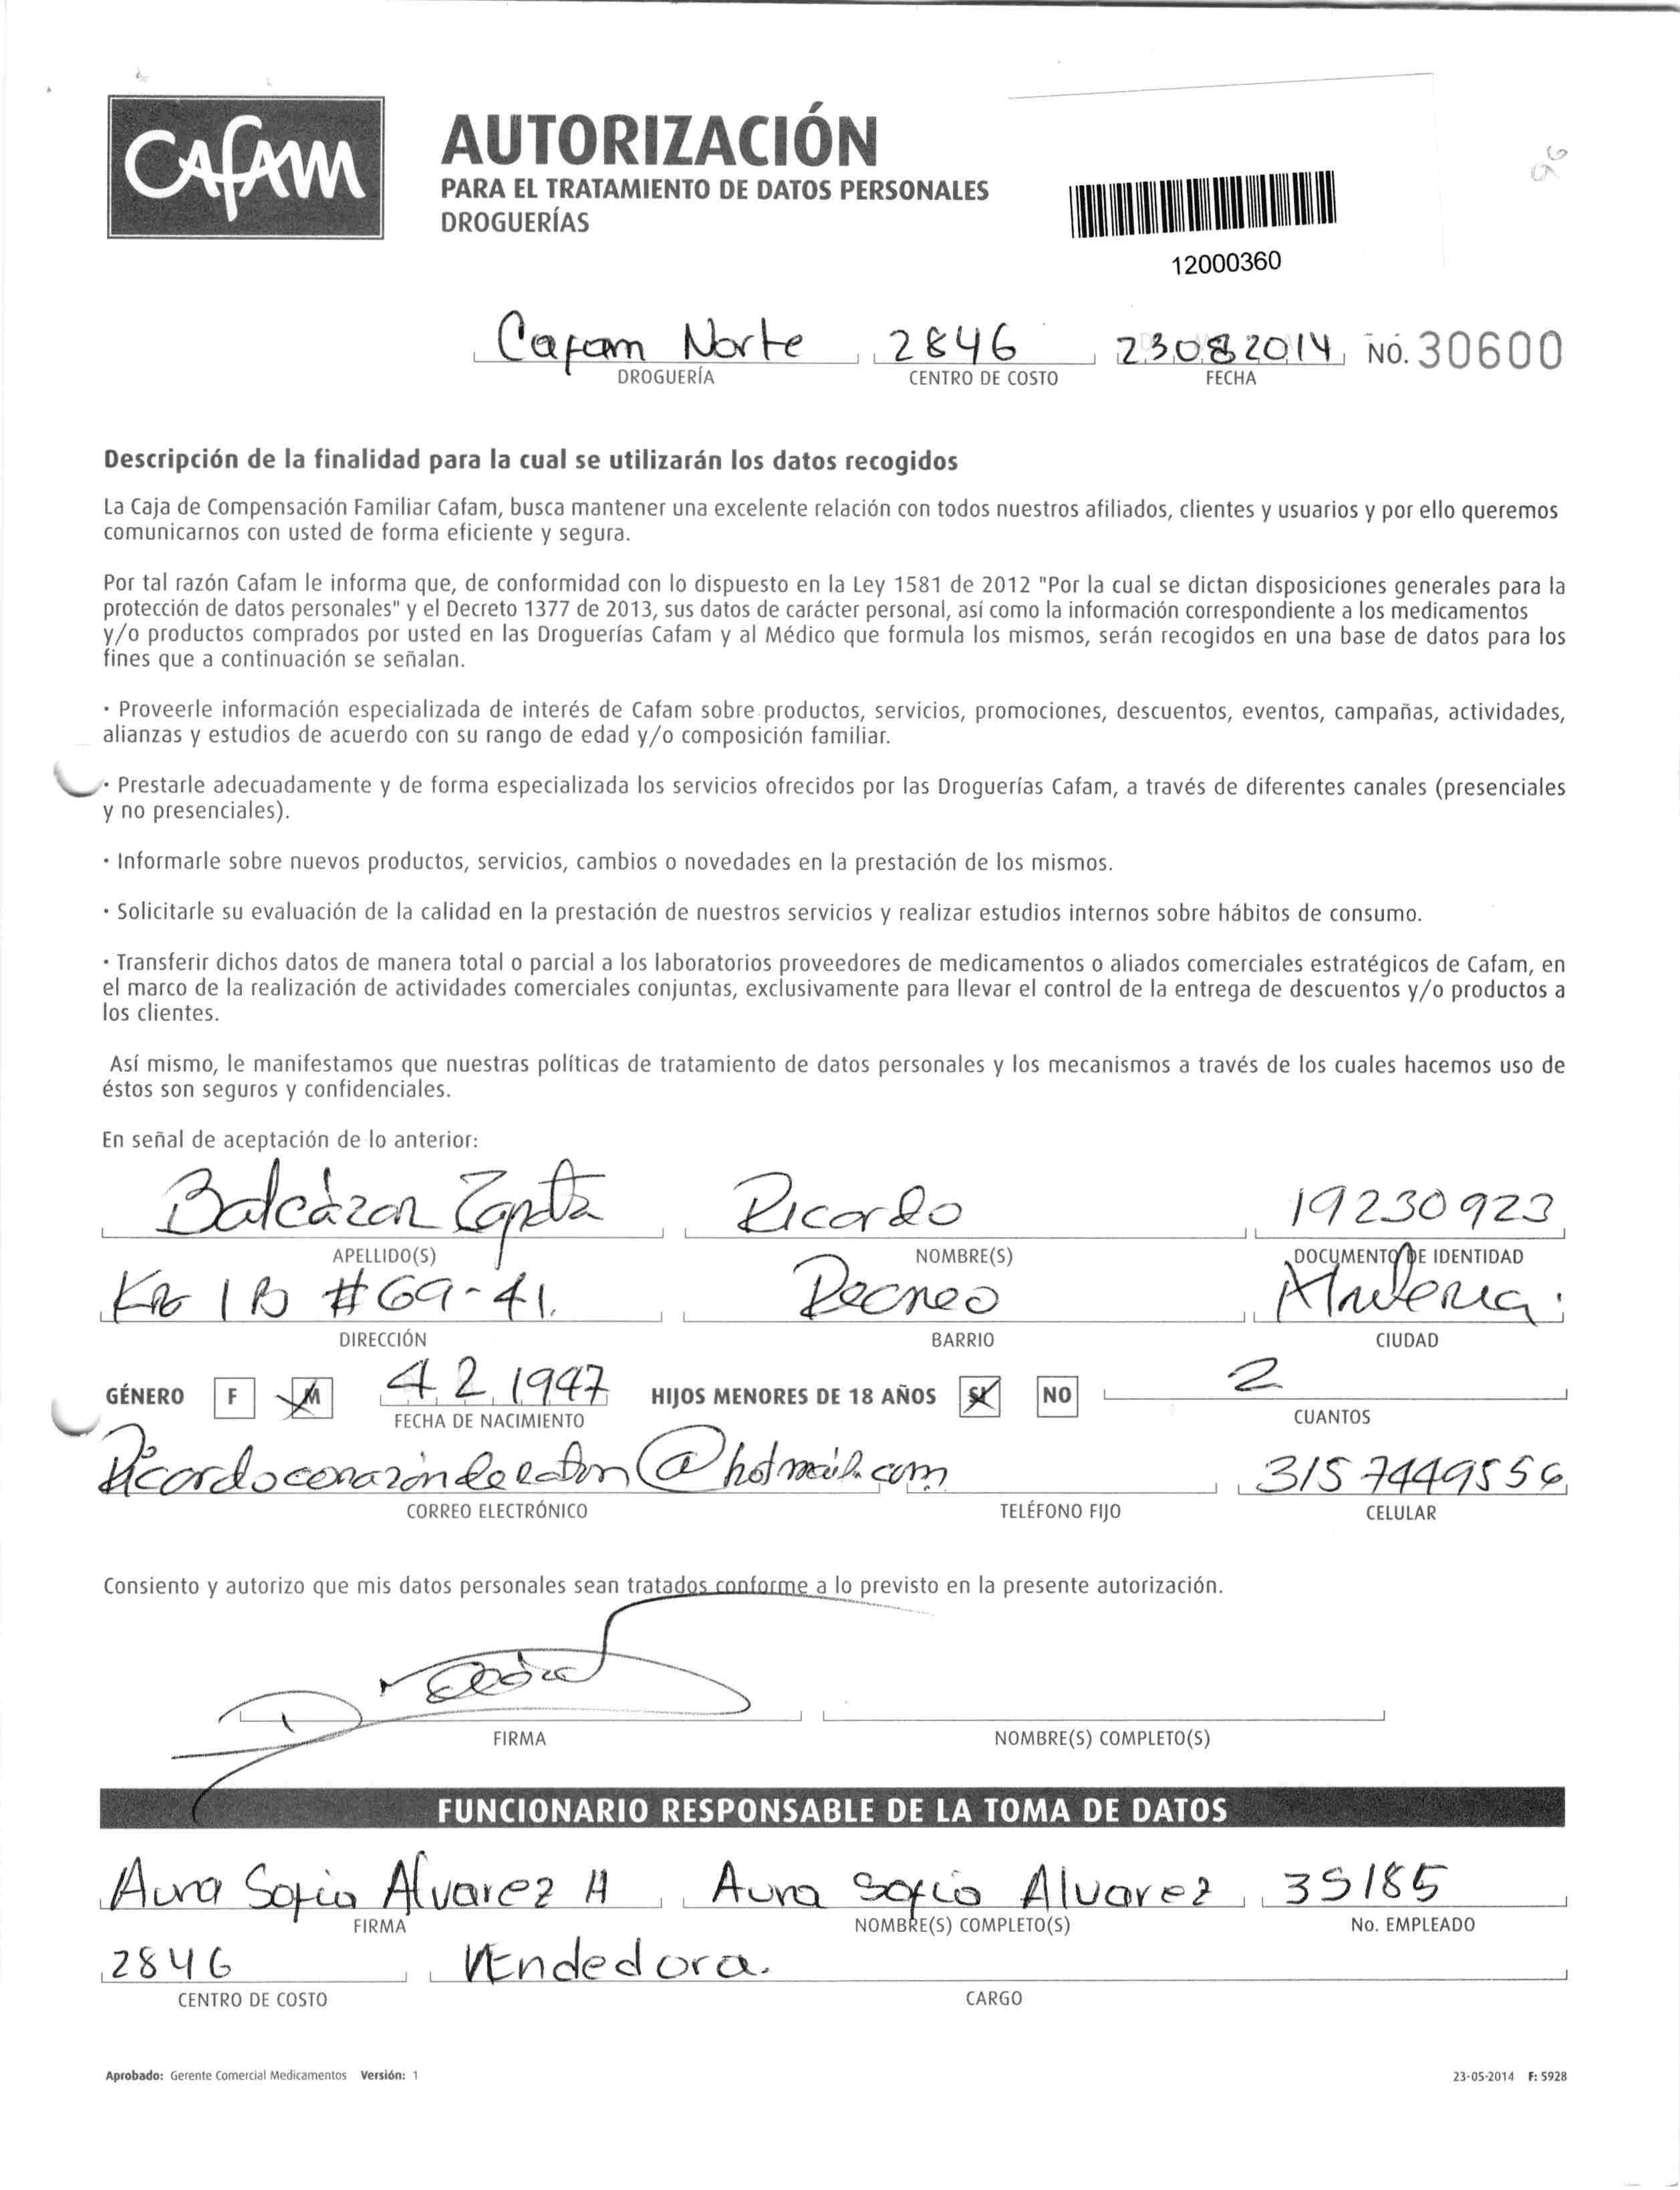 CAFAM
AUTORIZACIÓN
PARA EL TRATAMIENTO DE DATOS PERSONALES
DROGUERÍAS
12000360
Cafam Norte 2846 23082014 NO. 30600
DROGUERÍA CENTRO DE COSTO FECHA
Descripción de la finalidad para la cual se utilizarán los datos recogidos
La Caja de Compensación Familiar Cafam, busca mantener una excelente relación con todos nuestros afiliados, clientes y usuarios y por ello queremos
comunicarnos con usted de forma eficiente y segura.
Por tal razón Cafam le informa que, de conformidad con lo dispuesto en la Ley 1581 de 2012 "Por la cual se dictan disposiciones generales para la
protección de datos personales" y el Decreto 1377 de 2013, sus datos de carácter personal, así como la información correspondiente a los medicamentos
y/o productos comprados por usted en las Droguerías Cafam y al Médico que formula los mismos, serán recogidos en una base de datos para los
fines que a continuación se señalan.
· Proveerle información especializada de interés de Cafam sobre productos, servicios, promociones, descuentos, eventos, campañas, actividades,
alianzas y estudios de acuerdo con su rango de edad y/o composición familiar.
· Prestarle adecuadamente y de forma especializada los servicios ofrecidos por las Droguerías Cafam, a través de diferentes canales (presenciales
y no presenciales).
· Informarle sobre nuevos productos, servicios, cambios o novedades en la prestación de los mismos.
· Solicitarle su evaluación de la calidad en la prestación de nuestros servicios y realizar estudios internos sobre hábitos de consumo.
· Transferir dichos datos de manera total o parcial a los laboratorios proveedores de medicamentos o aliados comerciales estratégicos de Cafam, en
el marco de la realización de actividades comerciales conjuntas, exclusivamente para llevar el control de la entrega de descuentos y/o productos a
los clientes.
Así mismo, le manifestamos que nuestras políticas de tratamiento de datos personales y los mecanismos a través de los cuales hacemos uso de
éstos son seguros y confidenciales.
En señal de aceptación de lo anterior:
Balcázar Zapata Ricardo 19230923
APELLIDO(S) NOMBRE(S) DOCUMENTO DE IDENTIDAD
#69-41. Recreo
DIRECCIÓN BARRIO CIUDAD
GÉNERO F M 4 2 1947 HIJOS MENORES DE 18 AÑOS SI NO 2
FECHA DE NACIMIENTO CUANTOS
@hotmail.com 3157449556
CORREO ELECTRÓNICO TELÉFONO FIJO CELULAR
Consiento y autorizo que mis datos personales sean tratados conforme a lo previsto en la presente autorización.
FIRMA NOMBRE(S) COMPLETO(S)
FUNCIONARIO RESPONSABLE DE LA TOMA DE DATOS
Aura Sofia Alvarez H Aura Sofia Alvarez 35185
FIRMA NOMBRE(S) COMPLETO(S) No. EMPLEADO
2846 Vendedora.
CENTRO DE COSTO CARGO
Aprobado: Gerente Comercial Medicamentos Versión: 1 23-05-2014 F: 5928